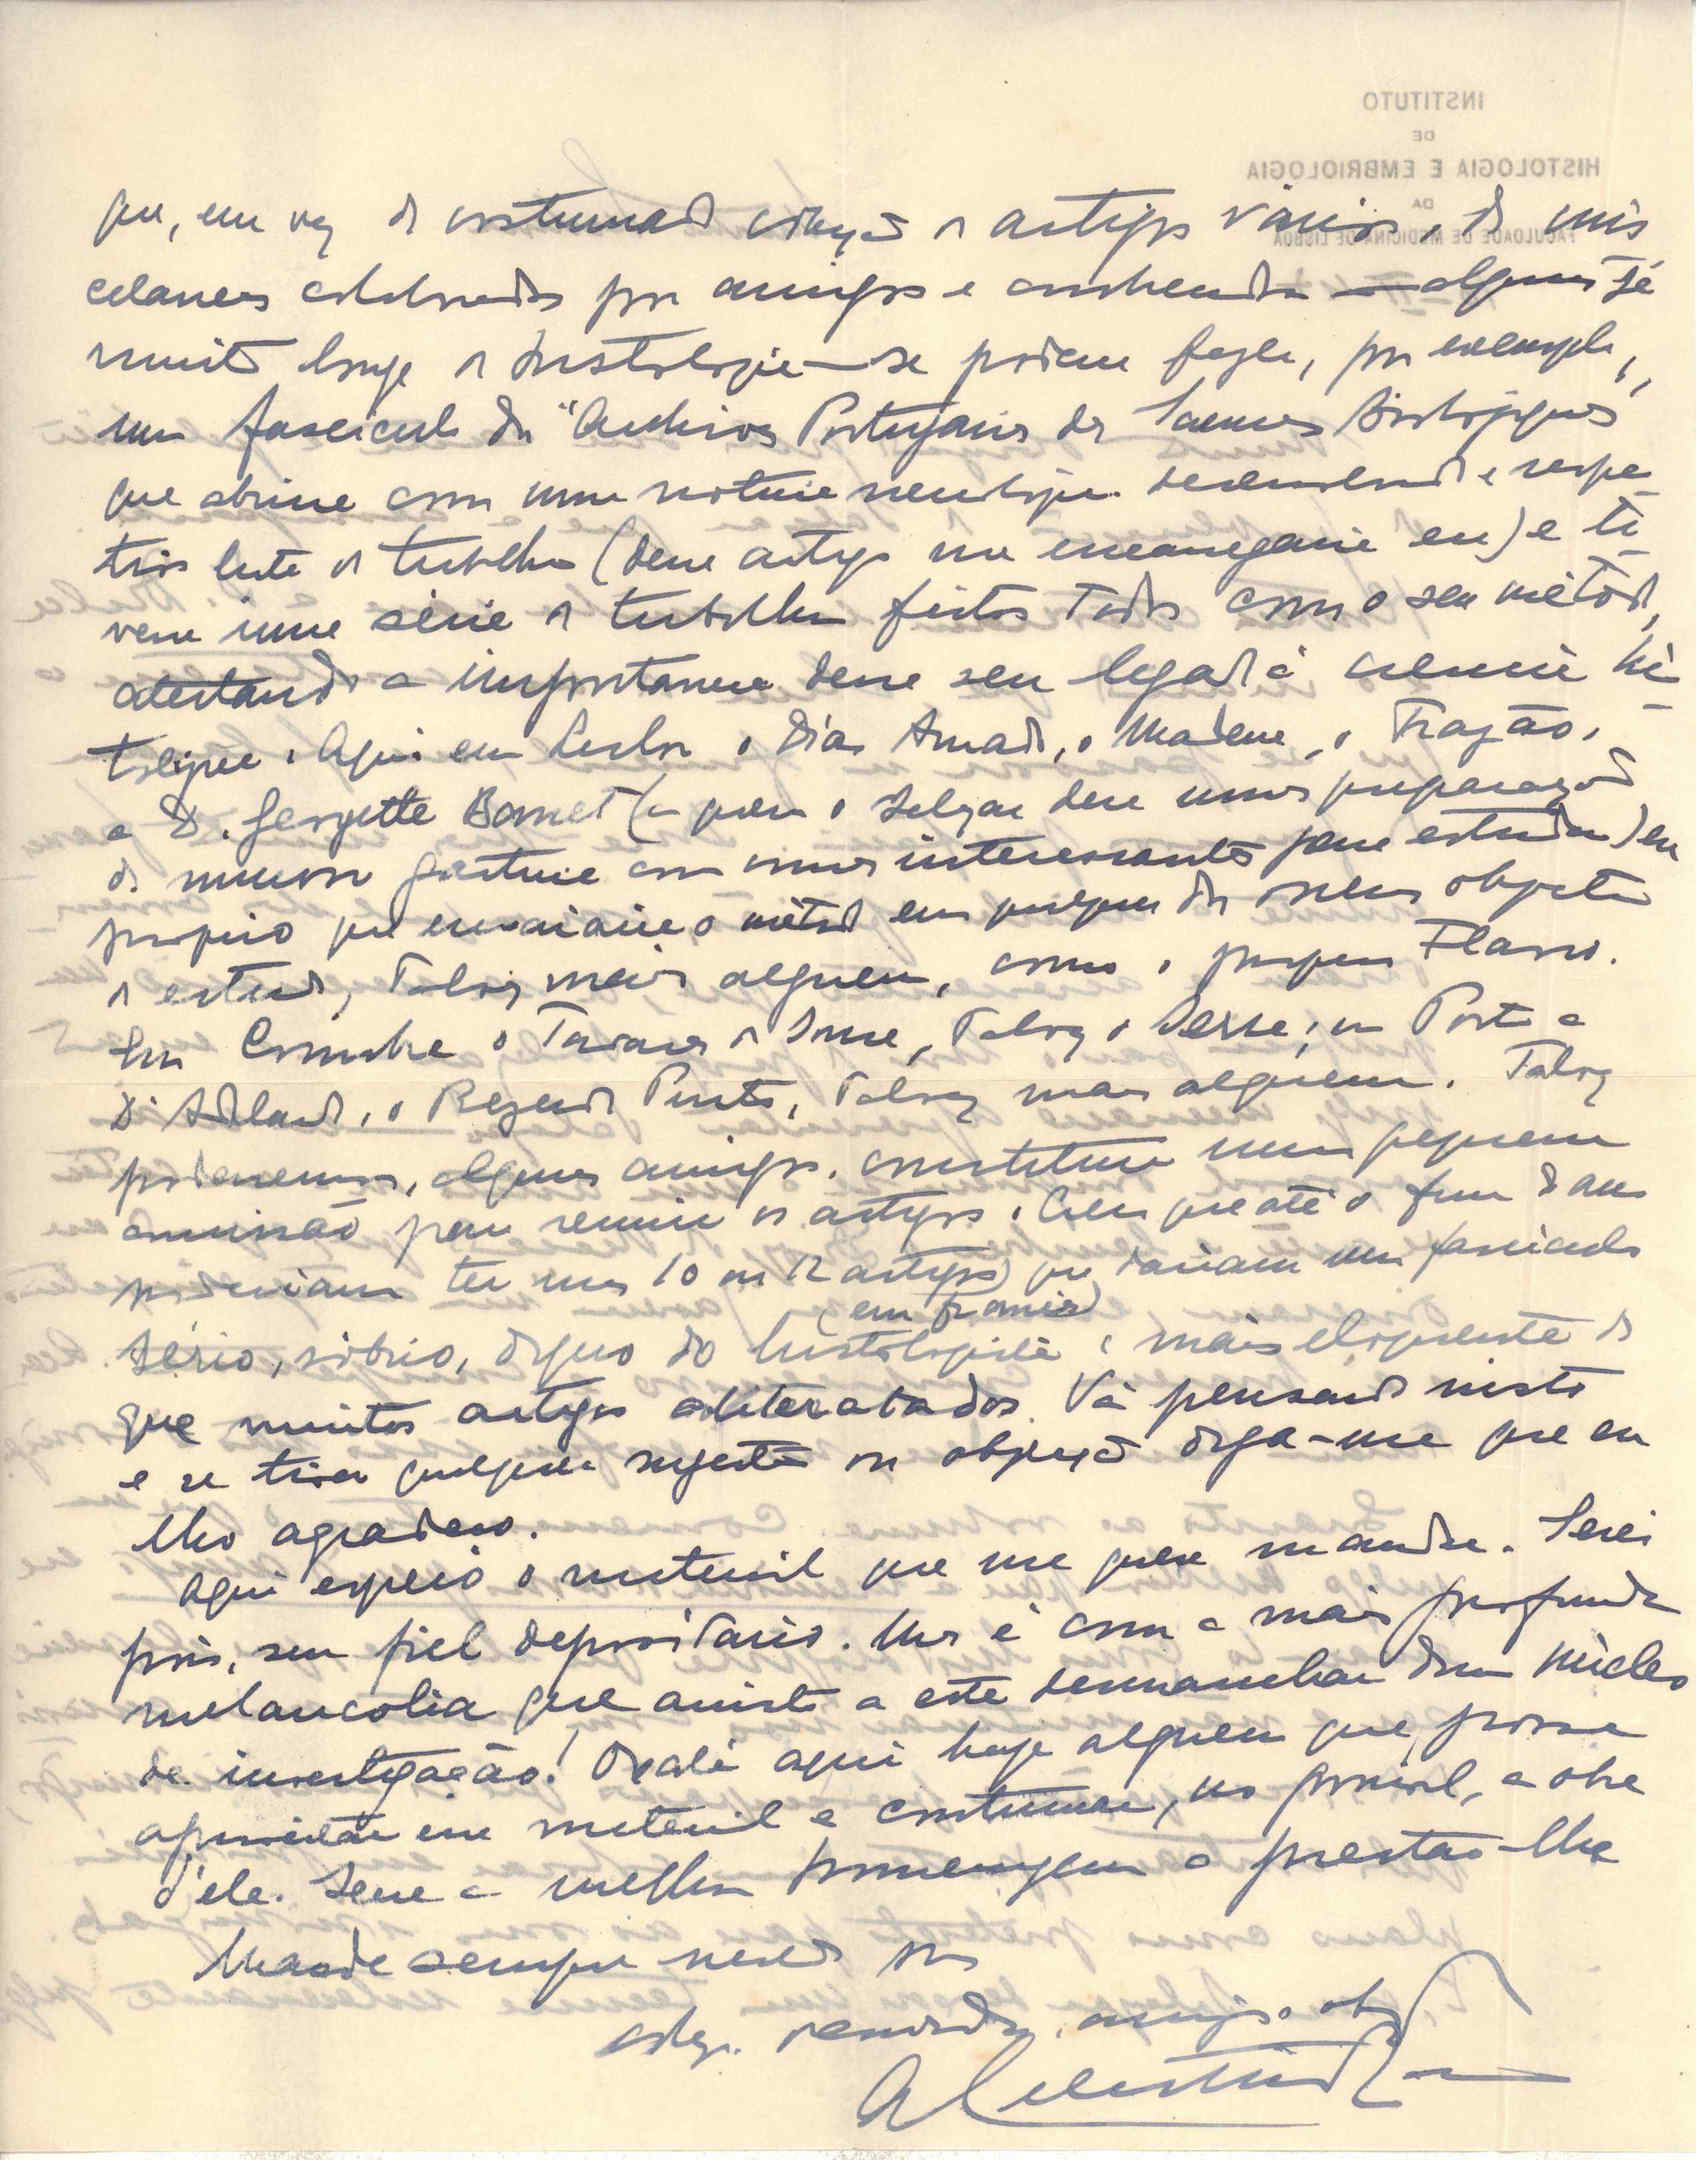 INSTITUTO
DE
HISTOLOGIA E EMBRIOLOGIA
DA
FACULDADE DE MEDICINA DE LISBOA
que, em vez do costumado artigos vários, de mis
celanea colaborada por amigos e alguns já
muito longe da histologia — se podia fazer, por exemplo,
um fasciculo dos "Archives Portugaises des Sciences Biologiques
que abrisse com uma noticia necrologica desenvolvida e respe
tiva lista de trabalhos (desse artigo me encarregaria eu) e ti
vesse uma série de trabalhos feitos todos com o seu método,
atestando a importancia desse seu legado à ciencia his
tologica. Aqui em Lisboa o Dias Amado, o Madeira, o Frazão,
a D. Georgette Barnet (a quem o Salazar dera umas preparações
de mucosa gastrica com coisas interessantes para estudar) eu
proprio que ensaiaria o método em qualquer dos meus objectos
de estudo, talvez mais alguem, como o proprio Flavio.
Em Coimbra o Tavares de Sousa, talvez o Serra; no Porto a
D. Adelaide, o Rezende Pinto, talvez mais alguem. Talvez
poderiamos, alguns amigos, constituir uma pequena
comissão para reunir os artigos. Creio que até o fim do ano
poderiam ter uns 10 ou 12 artigos que dariam um fasciculo
(em francês)
sério, sóbrio, digno do histologista e mais eloquente do
que muitos artigos aliteratados. Vá pensando nisto
e se tiver qualquer sugestão ou objeção diga-me que eu
lho agradeço.
Aqui espero o material que me quere mandar. Serei
pois, seu fiel depositario. Mas é com a mais profunda
melancolia que assisto a este desmanchar dum núcleo
de investigação! Oxalá aqui haja alguem que possa
aproveitar esse material e continuar, no possivel, a obra
d'ele. Seria a melhor homenagem a prestar-lhe
Mande sempre
coleg. amigo obg.
A Celestino da Costa